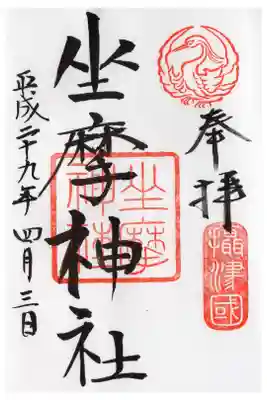 奉拝
攝津國
坐摩神社
坐摩神社
平成二十九年 四月 三日